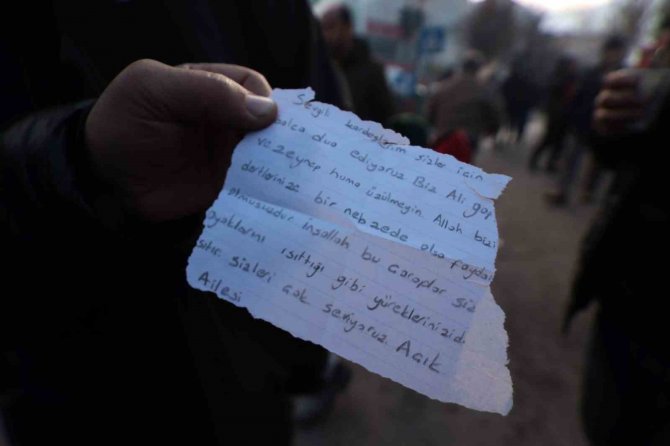 Sevgili kardeşlerim sizler için
dua ediyoruz Biz Ali
ve zeynep huma üzülmeyin Allah bizi
dertlerinize bir nebzede olsa faydalı
olmuşuzdur inşallah bu çoraplar siz
ayaklarını ısıttığı gibi yüreklerinizide
ısıtır sizleri çok seviyoruz Açık
Ailesi